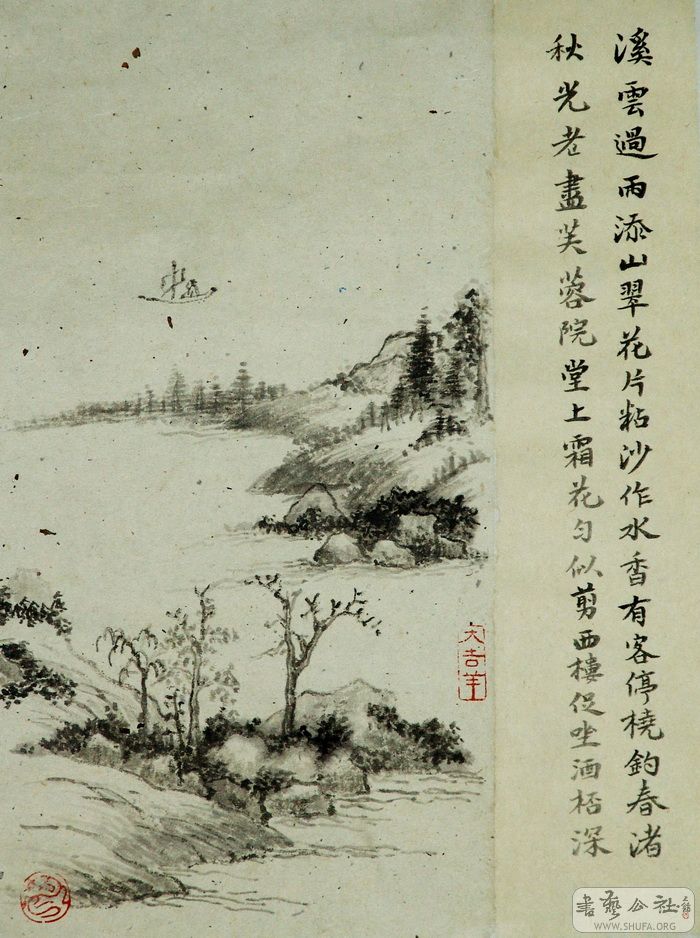 溪雲過雨添山翠花片粘沙作水香有客停橈釣春渚
秋光老盡芙蓉院堂上霜花勻似剪西樓促坐酒桮深
大吉羊
書藝公社
WWW.SHUFA.ORG